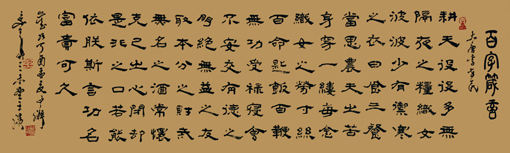 百字箴言
大唐李世民
耕夫役役多無
隔夜之糧織女
波波少有禦寒
之衣日食三餐
當思農夫之苦
身穿一縷每念
織女之勞寸絲
百命匙飯百鞭
無功受祿寢食
不安交有德之
朋絕無益之友
取本分之酒常懷
無名之酒常懷
克己之心閉却
是非之口若能
依朕斯言功名
富貴可久